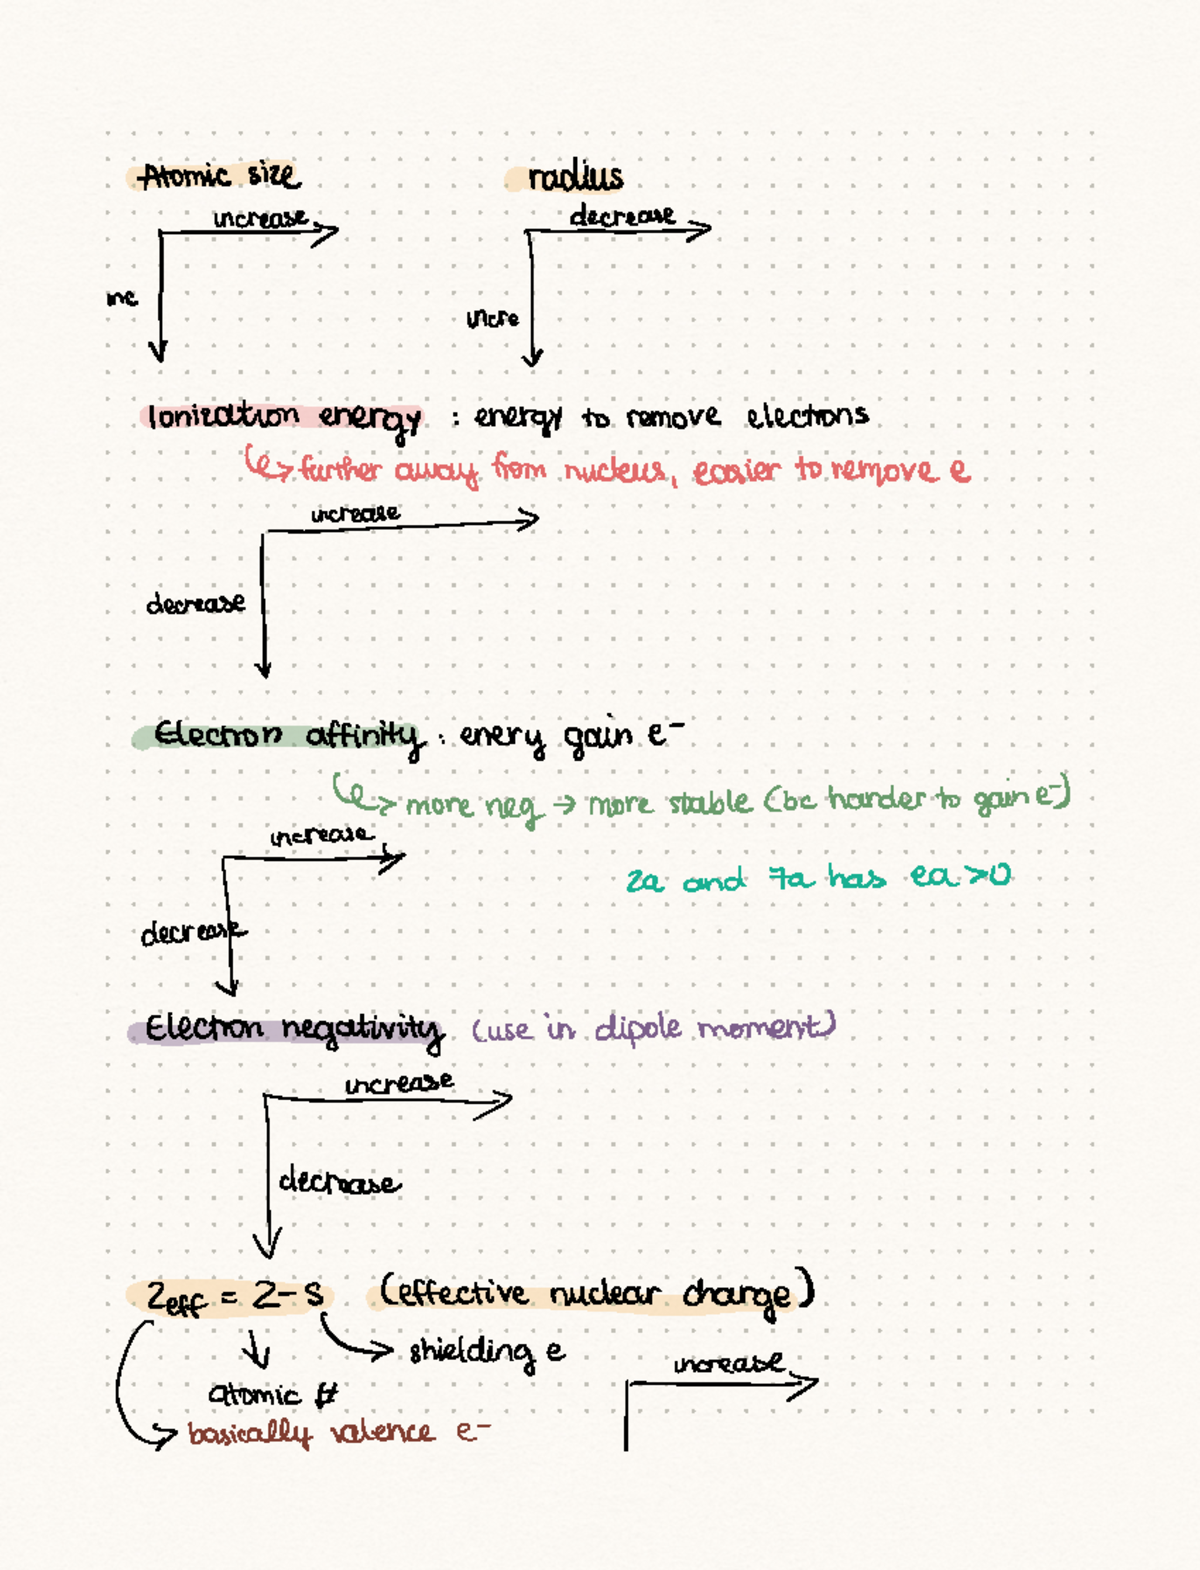 Atomic size
radius
increase
decrease
inc
incre
Ionization energy : energy to remove electrons
further away from nucleus, easier to remove e
increase
decrease
Electron affinity : enery gain e⁻
more neg → more stable (bc harder to gain e⁻)
increase
2a and 7a has ea >0
decrease
Electron negativity (use in dipole moment)
increase
decrease
Zeff = Z - S (effective nuclear charge)
shielding e
increase
atomic #
basically valence e⁻